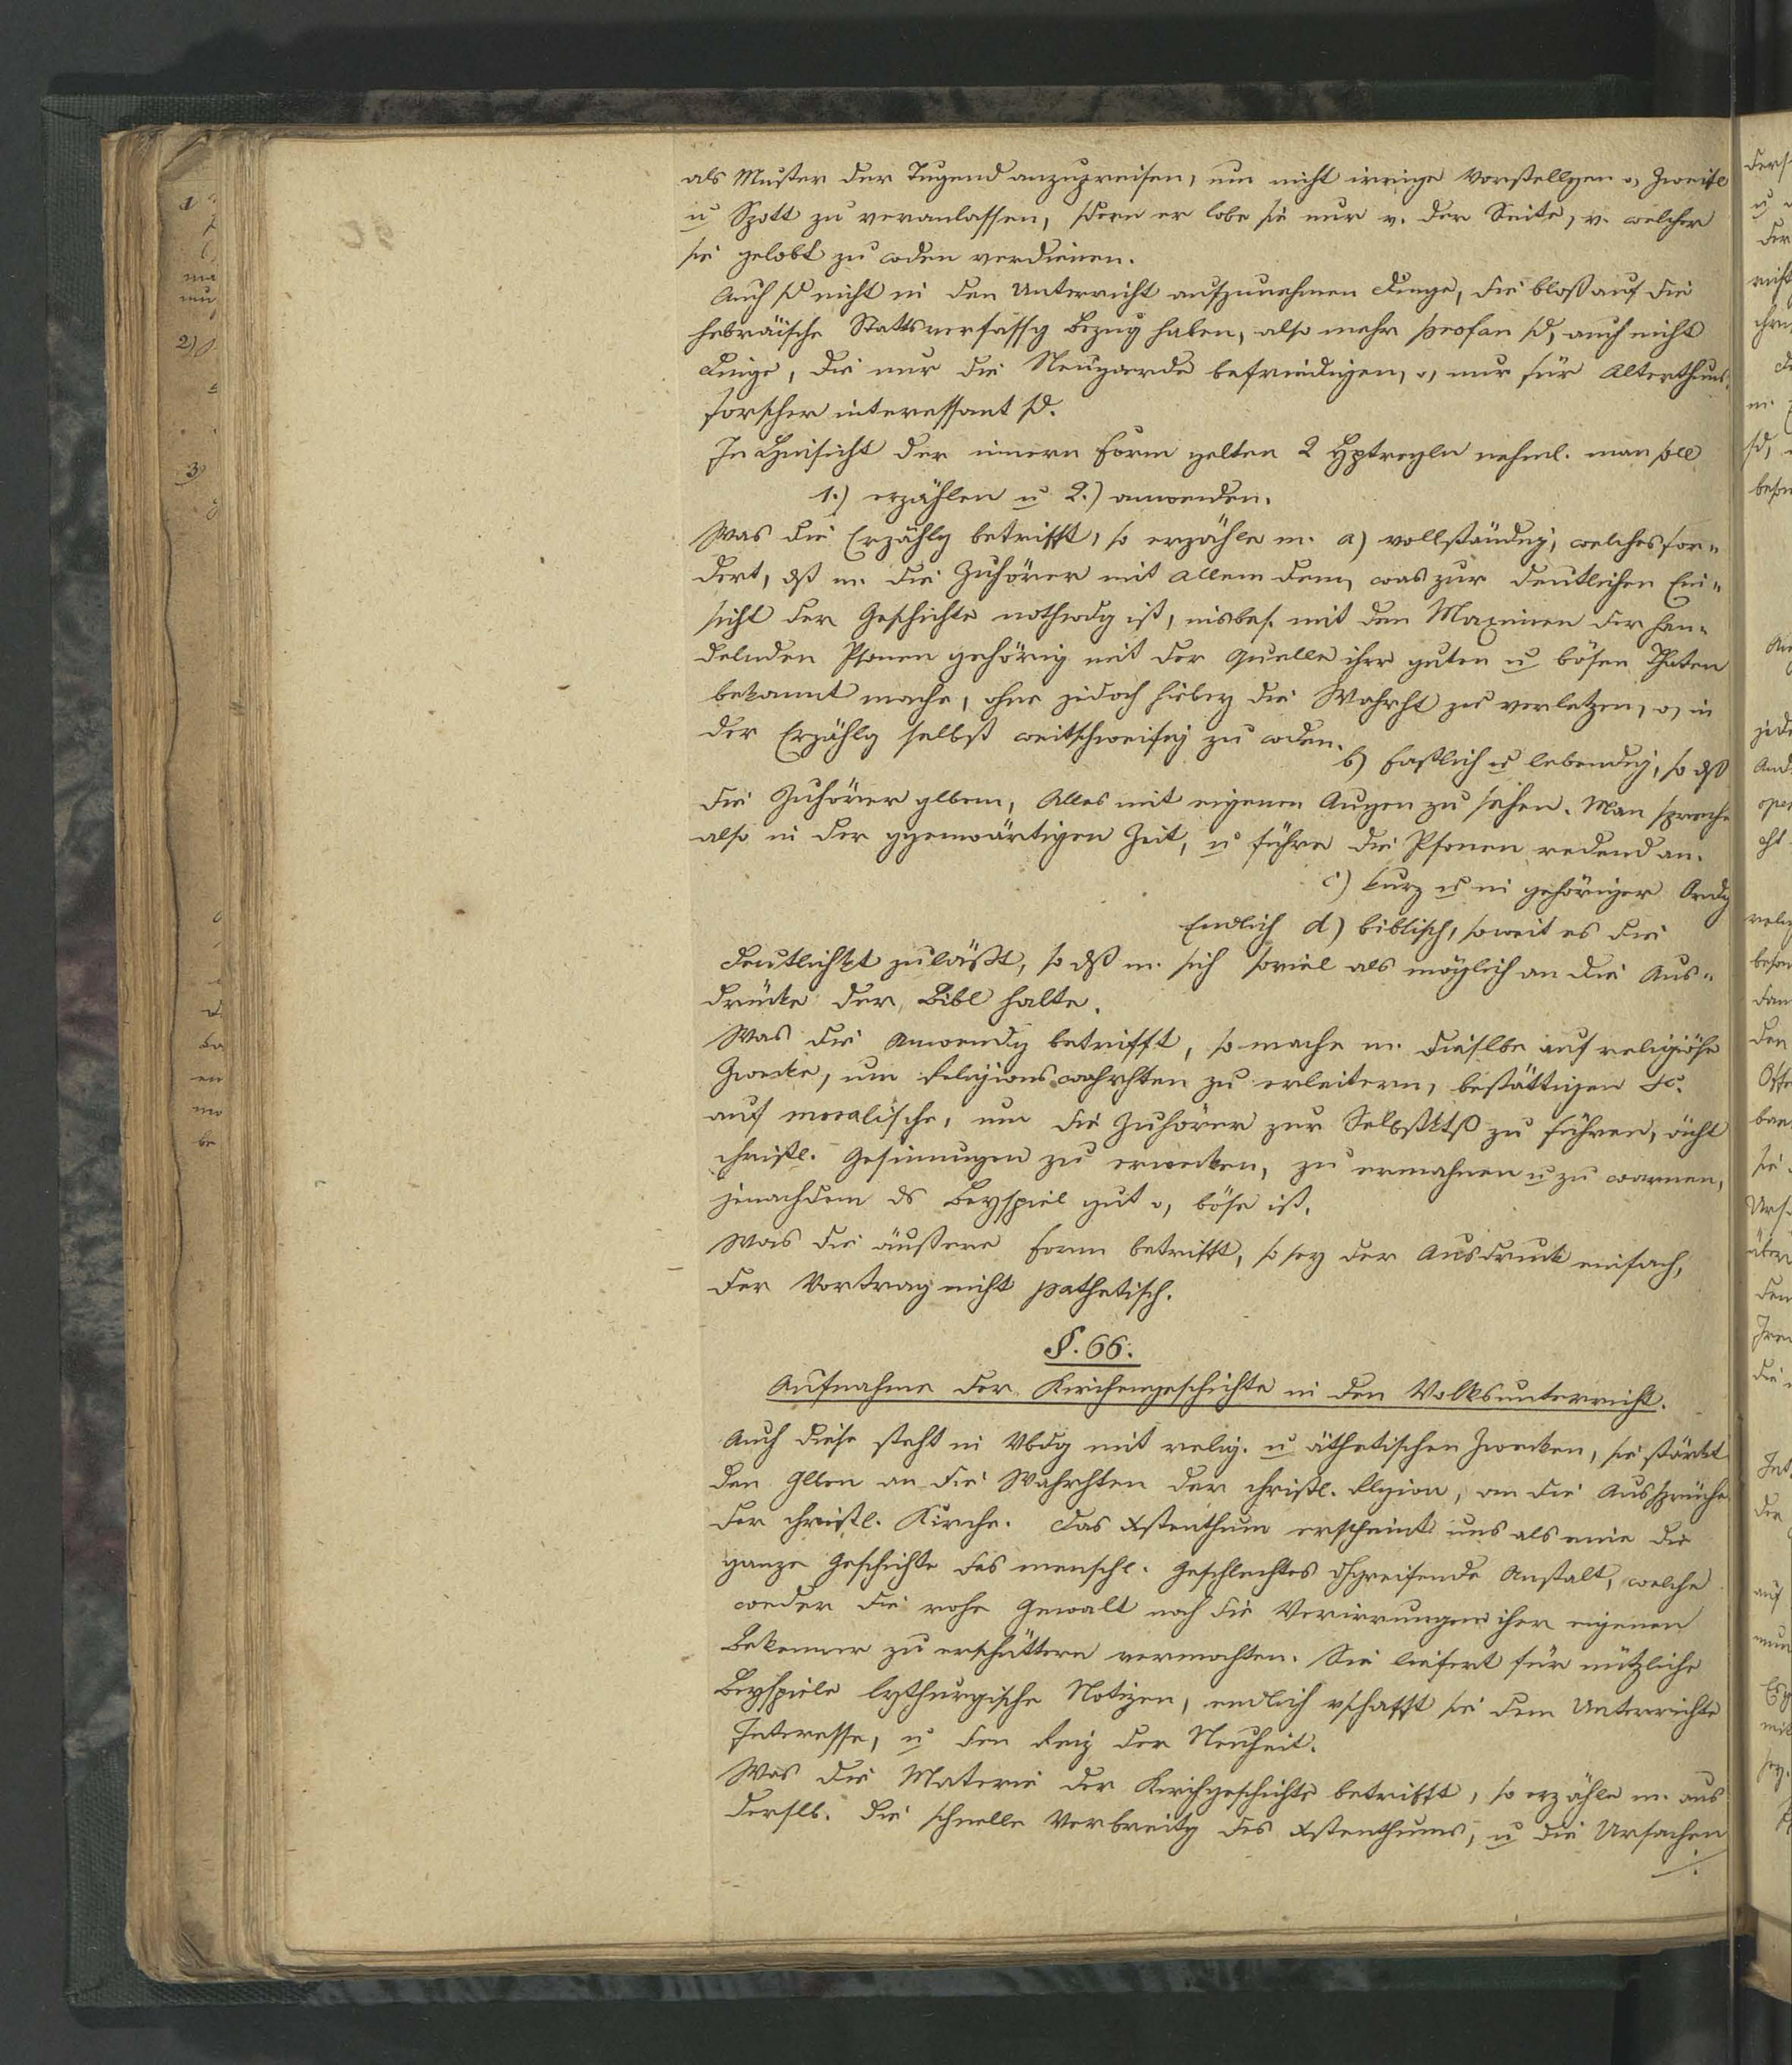 als Muster der Tugend anzupreisen, um nicht irrige Vorstellgen o, Zweifl
u Spott zu veranlassen, sdern er lobe sie nur v. der Seite, v. welcher
sie gelobt zu wden verdienen.
Auch sd nicht in den Unterricht aufzunehmen Dinge, die bloß auf die
hebräische Stattsverfassg Bezug haben, also mehr profan sd, auch nicht
Dinge, die nur die Neugierde befriedigen, o, nur für Alterthums¬
forscher interessant sd.
In Hinsicht der innern Form gelten 2 Hptregln nehml. man soll
1.) erzählen u 2.) anwenden.
Was die Erzählg betrifft, so erzähle m. a) vollständig, welches for¬
dert, dß m. die Zuhörer mit Allem dem, was zur deutlichen Ein¬
sicht der Geschichte nothwdg ist, insbes. mit den Maximen der han¬
delnden Psonen gehörig mit der Quelle ihrer guten u bösen Thaten
bekannt mache, ohne jedoch hiebey die Wahrht zu verletzen, o, in
der Erzählg selbst weitschweifig zu wden.
b) Faßlich u lebendig, so dß
die Zuhörer glben, Alles mit eigenen Augen zu sehen. Man spreche
also in der ggenwärtigen Zeit, u führe die Psonen redend an.
c) kurz u in gehöriger Ordg
Endlich d) biblisch, soweit es die
Deutlichkt zuläßt, so dß m. sich soviel als möglich an die Aus¬
drücke der Bibl halte.
Was die Anwendg betrifft, so mache m. dieslbe auf religiöse
Zwecke, um Religionswahrhten zu erleitern, bestättigen &c.
auf moralische, um die Zuhörer zur Selbstktß zu führen, ächt
christl. Gesinnugen zu erwecken, zu ermahnen u zu warnen,
jenachdem ds Beyspiel gut o, böse ist.
Was die äußere Form betrifft, so sey der Ausdruck einfach,
der Vortrag nicht pathetisch.
§. 66.
Aufnahme der Kirchengeschichte in den Volksunterricht.
Auch diese steht in Vbdg mit relig. u äthetischen Zwecken, sie stärkt
den Glben an die Wahrhten der christl. Rlgion, an die Aussprüche
der christl. Kirche. Das Xstenthum erscheint uns als eine die
ganze Geschichte des menschl. Geschlechtes dchgreifende Anstalt, welche
weder die rohe Gewalt noch die Verirrungen ihrer eigenen
Bekenner zu erschüttern vermochten. Sie liefert für nützliche
Beyspiele lythurgische Notizen, endlich vschafft sie dem Unterrichte
Interesse, u den Reiz der Neuheit.
Was die Materie der Kirchgeschichte betrifft, so erzähle m. aus
derslb. die schnelle Verbreitg des Xstenthums, u die Ursachen